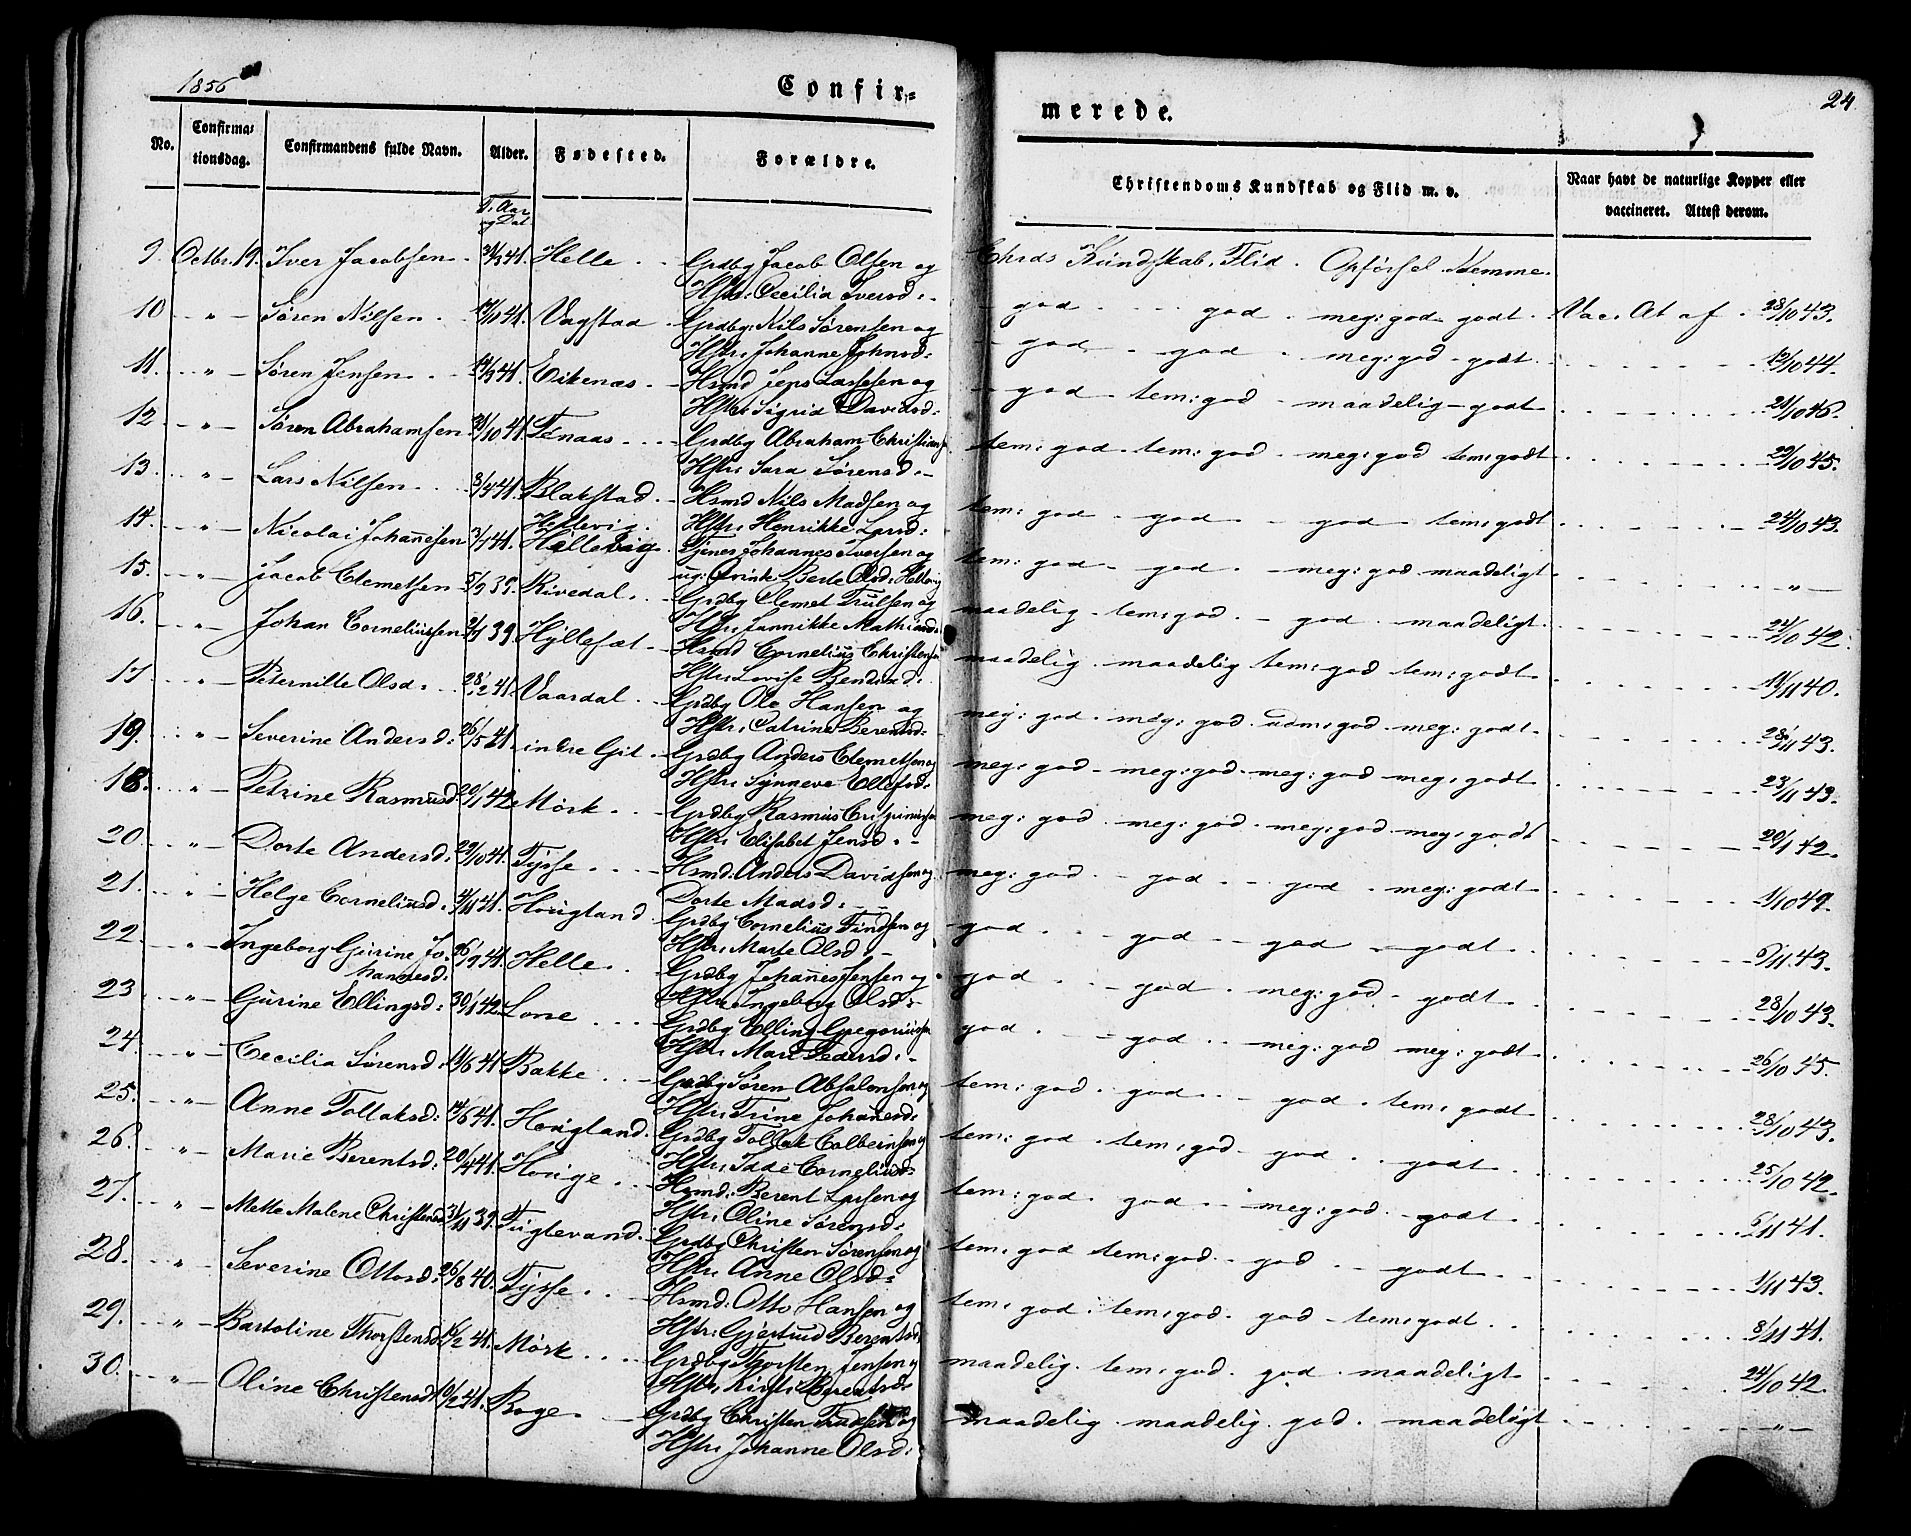 1856
Confir=
merede.
24
No.
Confirma=
tionsdag.
Confirmandens fulde Navn.
Alder.
Fødested.
Forældre.
Christendoms Kundskab og Flid m. v.
Naar havt de naturlige Kopper eller
vaccineret. Attest derom.
F. Aar
og Dat
9. Octbr. 19. Iver Jacobsen Helle Grdbg Jacob Olsen og Chrds Kundskab. Flid. Opførsel. Nemme.
Hstr: Cecilia Iversd:
10 " Søren Nilsen Vagstad Grdbg: Nils Sørensen og god god meg: god godt Vac. At af 28/10 43.
Hstr: Johanne Johnsd:
11. " Søren Jensen Eikenæs Hsmd Jens Larssen og god god meg: god godt 12/10 44.
Hstr: Sigrid Davidsd:
12 " Søren Abrahamsen 31/10 41. Tenaas Grdbg Abraham Christians god tem: god maadelig godt 21/10 46.
Hstr: Sara Sørensd:
13. " Lars Nilsen 3/4 41. Blakstad Hsmd Nils Madsen og tem: god tem: god meg: god tem: godt 29/10 45.
Hstr: Henrikke Larsd:
14. " Nicolai Johanesen 3/7 41. Hellevig Tjener Johannes Iversen og tem: god god god tem: godt 24/10 43.
Hellevig
ug: Qvinde Berte Olsd: Hellevig
15. " Jacob Clemetsen 5/9 39. Rivedal Grdbg Clemet Trulsen og tem: god god meg: god maadeligt "
Hstr: Jannikke Mathiasd:
16. " Johan Corneliussen Hyllesæt Hsmd Cornelius Christensen maadelig tem: god god maadeligt 24/10 42.
Hstr: Lovise
17 " Peternille Olsd: 28/12 41. Vaardal Grdbg Ole Hansen og maadelig maadelig tem: god tem: godt 14/11 40.
Hstr: Catrine Berentsd:
19. " Severine Andersd: 26/5 41. indre Git Grdbg Anders Clemetsen og meg: god meg: god god meg: godt 28/11 43.
Hstr: Synneve Ellefsd:
18. " Petrine Rasmusd 20/1 42 Mørk Grdbg Rasmus meg: god meg: god meg: god meg: godt 23/11 43.
Hstr: Elisabet Jensd:
20 " Dorte Andersd: 29/10 41. Tysse Hsmd: Anders Davidsen og meg: god meg: god meg: god meg: godt 20/1 42.
Dorte Madsd:
21. " Helge Corneliusd. 4/11 41. Hougland Grdbg Cornelius Findsen og meg: god god god meg: godt 1/10 49.
Hstr: Marte Olsd:
22 " Ingeborg Gurine Jo= 26/9 41. Helle Grdbg Johanes Jensen og god god god godt 6/11 43.
hannesd:
Hstr: Ingeborg Olsd:
23 " Gurine Ellingsd: 30/1 42 Lone Grdbg Elling Gregoriussen god god meg: god godt 28/10 43.
Hstr: Mari Pedersd:
24. " Cecilia Sørensd: 11/6 41 Bakke Grdbg Søren Absalonsen og god god meg: god meg: godt 26/10 45.
Hstr: Trine Johanesd:
25. " Anne Tollaksd: 14/6 41. Hougland Grdbg Tollak Colbeinsen og tem: god god god tem: godt 28/10 43.
Hstr: Idde Corneliusd:
26. " Marie Berentsd: 20/4 41. Houge Hsmd: Berent Larsen og tem: god tem: god god godt 25/10 42.
Hstr: Oline Sørensd:
27. " Mette Malene Christensd 3/11 39. Fuglevand. Grdbg Christen Sørensen og tem: god god meg: god godt 6/11 41.
Hstr: Anne Olsd:
28. " Severine Ottosd: 26/8 40. Tysse Hsmd: Otto Hansen og tem: god tem: god god godt 1/11 43.
Hstr: Gjertrud Berentsd:
29. " Bartoline Thorstensd: Mørk Grdbg Thorsten Jensen og tem: god tem: god god tem: godt 8/11 41.
Hstr: Kirsti Berentsd:
30. " Oline Christensd 10/2 41. Boge Grdbg Christen og maadelig tem: god god maadeligt 24/10 42.
Hstr: Johanne Olsd: maadelig maadelig god maadeligt "